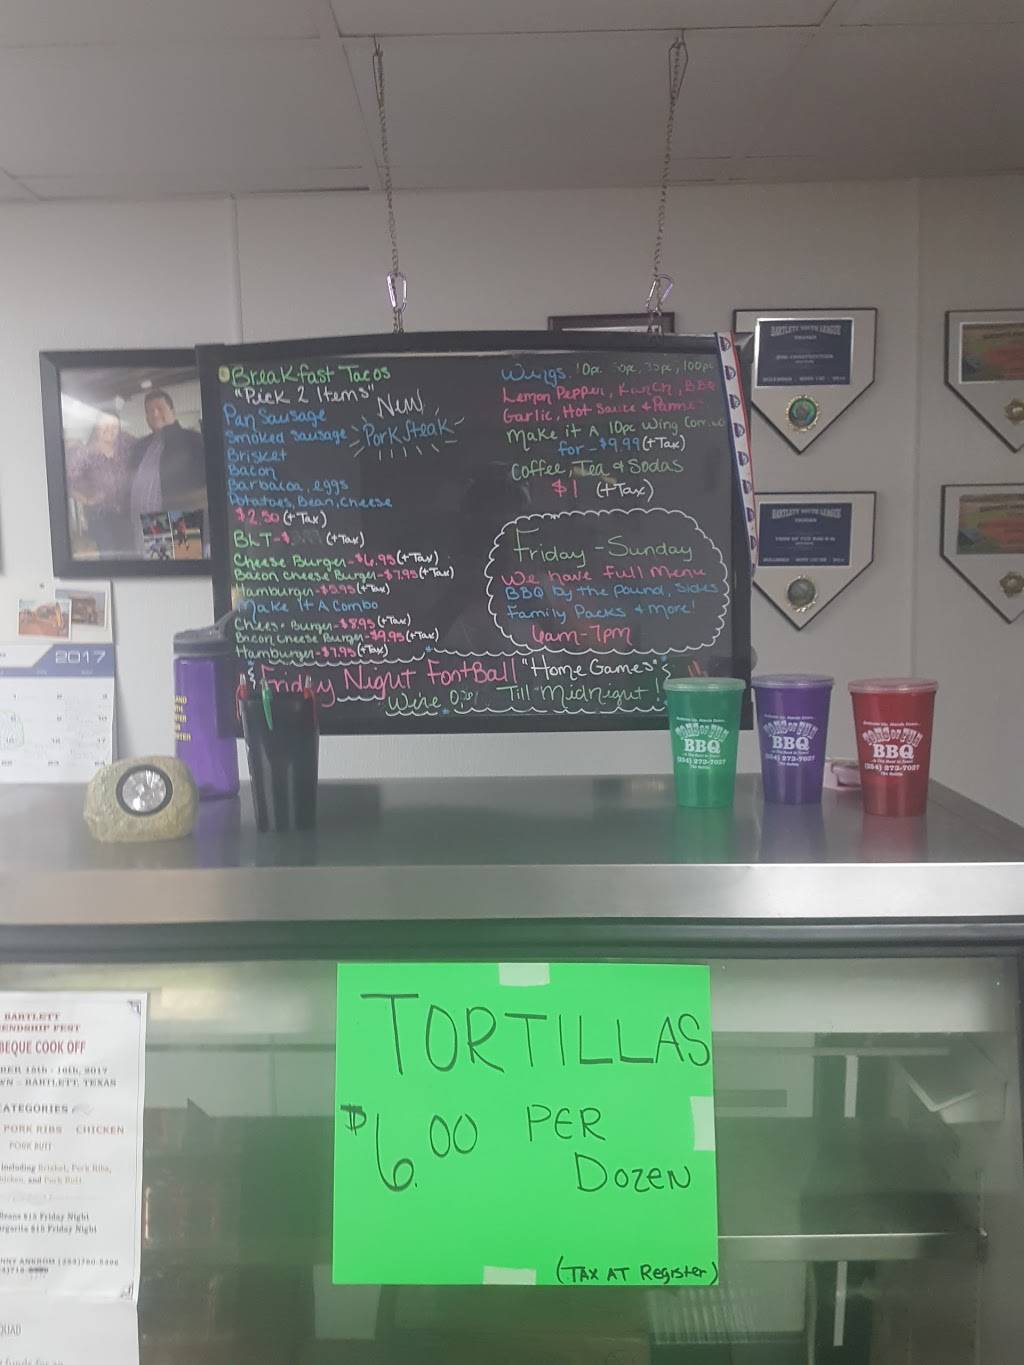 Breakfast Tacos
"Pick 2 Items"
Pan Sausage
Smoked Sausage
Brisket
Bacon
Barbacoa, eggs
Potatoes, Bean, Cheese
$2.50 (+Tax)
New!
Pork Steak
BLT-$ (+Tax)
Cheese Burger-$6.95 (+Tax)
Bacon Cheese Burger-$7.95 (+Tax)
Hamburger-$5.95 (+Tax)
Make It A Combo
Cheese Burger-$8.95 (+Tax)
Bacon Cheese Burger-$9.95 (+Tax)
Hamburger-$7.95 (+Tax)
Wings. 10pc 100pc
Lemon Pepper, BBQ
Garlic, Hot Sauce &
Make it A 10pc Wing
for-$9.99 (+Tax)
Coffee, Tea & Sodas
$1 (+Tax)
Friday-Sunday
We have full Menu
BBQ by the Pound, Sides
Family Packs & More!
6am-7pm
Friday Night Football "Home Games"
We're Till Midnight!
2017
BARTLETT YOUTH LEAGUE
BARTLETT YOUTH LEAGUE
SONS OF FUN
BBQ
(254) 273-7027
SONS OF FUN
BBQ
(254) 273-7027
SONS OF FUN
BBQ
(254) 273-7027
TORTILLAS
$6.00 PER
DOZEN
(TAX AT Register)
BARTLETT
ENDSHIP FEST
BEQUE COOK OFF
2017
BARTLETT, TEXAS
CATEGORIES
PORK RIBS CHICKEN
PORK BUTT
including Brisket, Pork Ribs,
and Pork Butt
Beans $15 Friday Night
$15 Friday Night
QUAD